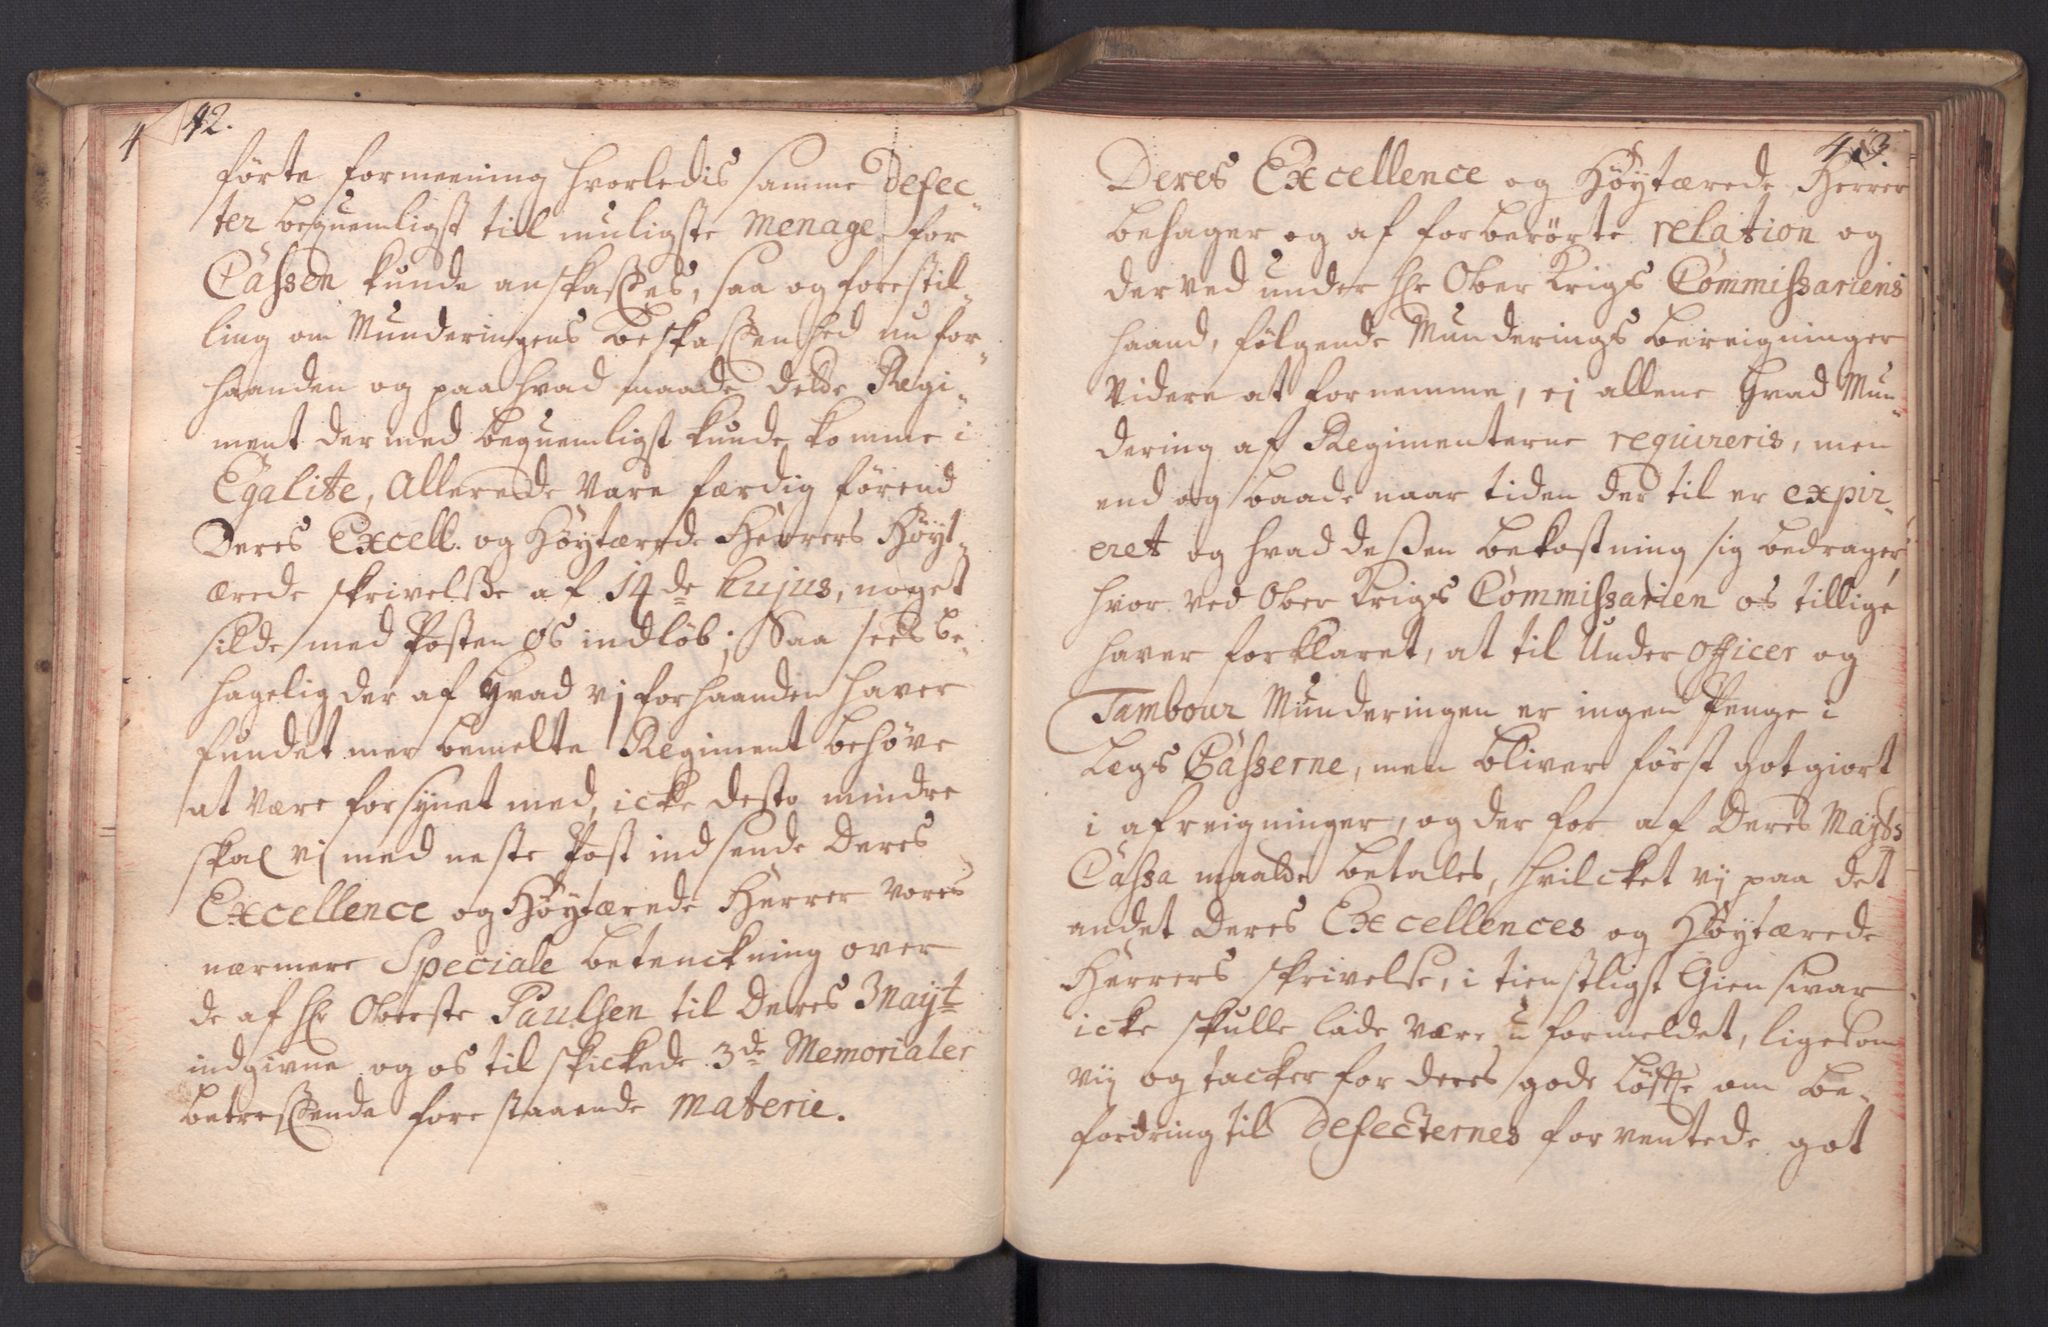 42.
førte formeening hvorledis samme Defec„
ter beqvemligst till muligste Menage for
Cassen kunde anskaffes, saa og forestil„
ling om Munderingens beskaffenhed nu for„
haanden og paa hvad maade dette Regi„
ment dermed beqvemligst kunde komme i
Egalite, Allerede vare færdig førend
Deres Excell. og Høytærede Herrers Høyt„
ærede skrivelse af 14de hujus, noget
silde med Posten os indløb; Saa sees be„
hagelig der af hvad vj forhaanden haver
fundet mer bemelte Regiment behøve
at være forsynet med, icke desto mindre
skal vj med neste Post indsende Deres
Excellence og Høytærede Herrer vores
nærmere Speciale betenckning over
de af Hr Oberste Paulsen til Deres Mayt
indgivne og os til skickede 3de Memorialer
betreffende forestaaende materie.
43.
Deres Excellence og Høytærede Herrer
behager og af forberørte relation og
derved under Hr Ober Krigs Commissariens
haand, følgende Munderings bereigninger
videre at fornemme, ej allene hvad Mun„
dering af Regimenterne requireris, men
end og baade naar tiden der til er expir„
eret og hvad dessen bekostning sig bedrager,
hvor ved Ober Krigs Commissarien os tillige
haver forklaret, at til Under officer og
Tambour Munderingen er ingen Penge i
Legs Casserne, men bliver først got giort
i afreigninger, og der for af Deres Mayts
Cassa maatte betales, hvilcket vij paa det
andet Deres Excellences og Høytærede
Herrers skrivelse, i tienstligst Giensvar
icke skulle lade være u formeldet, ligesom
vij og tacker for deres gode løfte om be„
fordring til Defecternes forventede got